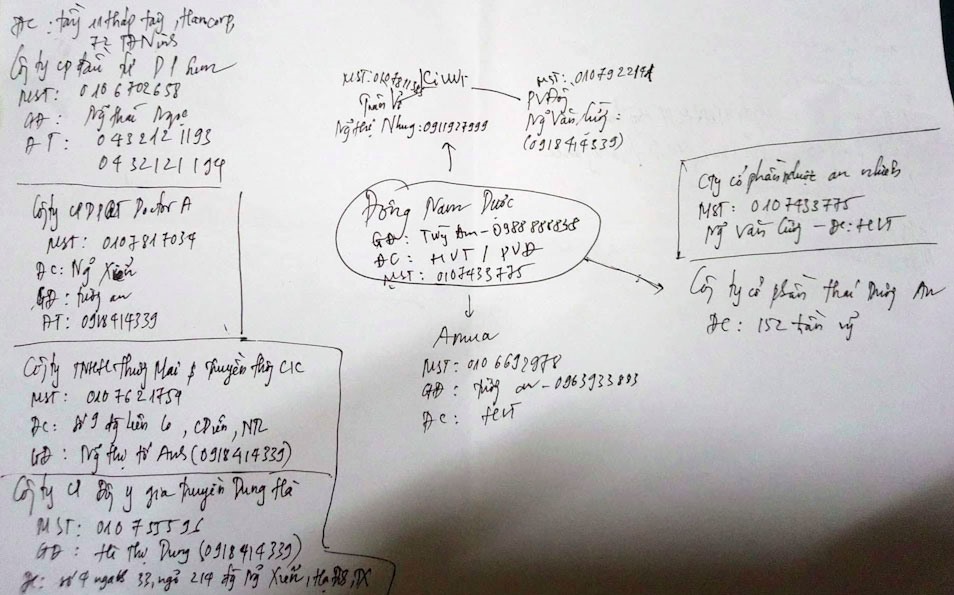 ĐC: tầng 11 tháp tây, Hancorp,
72 TĐN
Công ty CP
MST: 0106702658
GĐ: Ng Thái Ngọc
ĐT: 0432121193
0432121194
Công ty CP DP QT Doctor A
MST: 0107817034
ĐC: Ng Xiển
GĐ: tường an
ĐT: 0918414339
Công ty TNHH Thương Mại & Truyền thông CIC
MST: 0107621759
ĐC: số 9 đg liên cơ, CDiễn, NTL
GĐ: Ng thị tố Anh (0918414339)
Công ty CP đông y gia truyền Dung Hà
MST: 010755596
GĐ: Hà Thị Dung (0918414339)
ĐC: số 4 ngách 33, ngõ 214 đg Ng Xiển, Hạ Đ, TX
MST:
Trần Vỹ
Ng thị Nhung: 0911927999
MST: 010792219
PV Đồng
Ng Văn
(0918414339)
Đông Nam Dược
GĐ: - 0988888858
ĐC: HVT / PVĐ
MST: 0107433775
Amua
MST: 0106692978
GĐ: tường an - 0963933883
ĐC: HVT
Cty cổ phần dược an nhiên
MST: 0107433775
Ng Văn - ĐC: HVT
Công ty cổ phần thái Dương An
ĐC: 152 trần vỹ